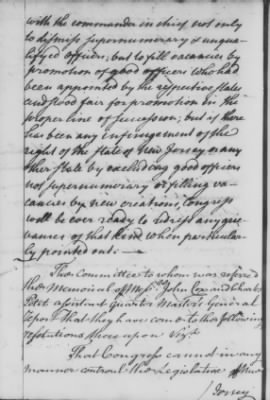 with the commander in chief not only
to dismiss supernumerary & unqua-
lifyed officers; but to fill vacancies by
promotion of good officers who had
been appointed by the respective states
and stood fair for promotion in the
proper line of succession; but if there
has been any infringement of the
right of the State of New Jersey or any
other State by excluding good officers
not supernumerary or filling va-
cancies by new creations, Congress
will be ever ready to redress any grie-
vances of that kind when particular-
ly pointed out:—
The Committee to whom was referred
the Memorial of Messrs John Cox and Charles
Pettit assistant Quarter Master's General
report That they have come to the following
resolutions thereupon Vizt
That Congress cannot in any
manner controul the Legislature of New
Jersey